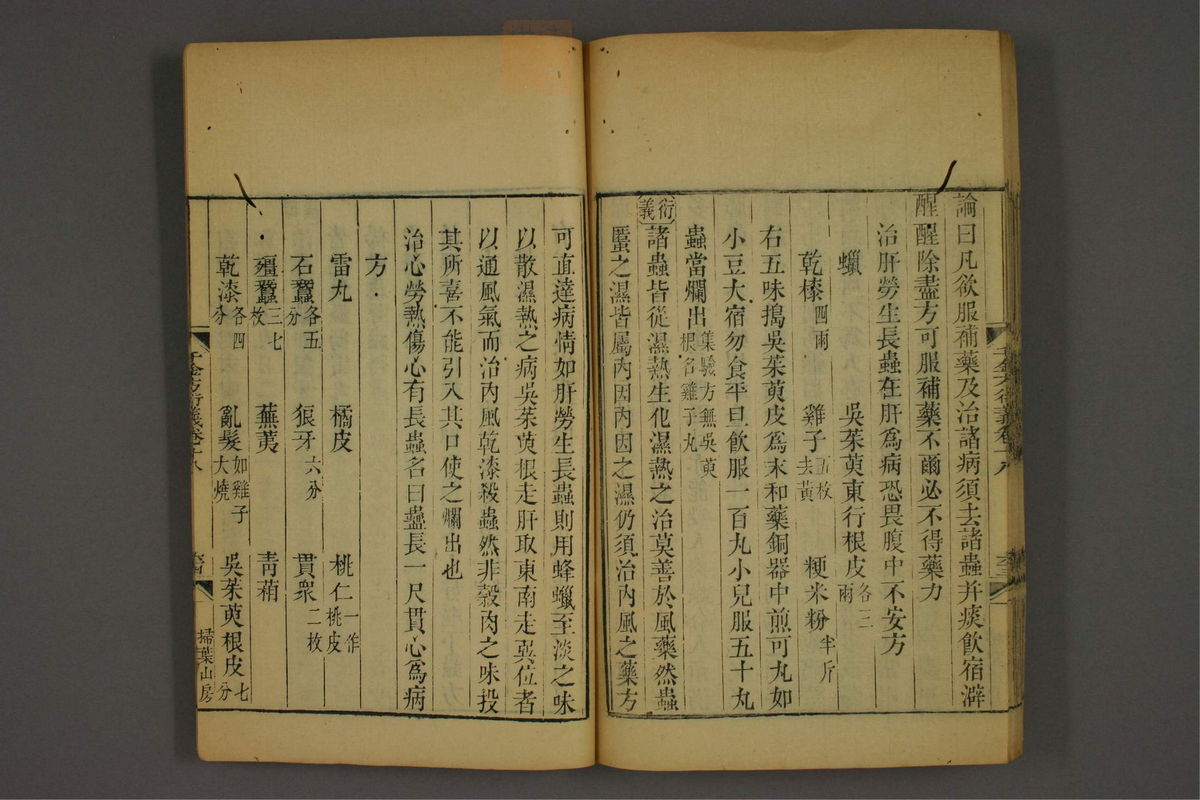 論曰凡欲服補藥及治諸病須去諸蟲并痰飲宿澼
醒醒除盡方可服補藥不爾必不得藥力
治肝勞生長蟲在肝為病恐畏腹中不安方
蠟 吳茱萸東行根皮各二兩
乾漆四兩 雞子五枚去黃 粳米粉半斤
右五味搗吳茱萸皮為末和藥銅器中煎可丸如
小豆大宿勿食平旦飲服一百丸小兒服五十丸
蟲當爛出集驗方無吳萸根名雞子丸
衍義 諸蟲皆從濕熱生化濕熱之治莫善於風藥然蟲
䘌之濕皆屬內因內因之濕仍須治內風之藥方
可直達病情如肝勞生長蟲則用蜂蠟至淡之味
以散濕熱之病吳茱萸根走肝取東南走巽位者
以通風氣而治內風乾漆殺蟲然非穀肉之味投
其所喜不能引入其口使之爛出也
治心勞熱傷心有長蟲名曰蠱長一尺貫心為病
方
雷丸 橘皮 桃仁一作桃皮
石蠶各五分 狼牙六分 貫衆二枚
殭蠶三七枚 蕪荑 青葙
乾漆各四分 亂髮如雞子大燒 吳茱萸根皮七分
千金方衍義卷十八
掃葉山房